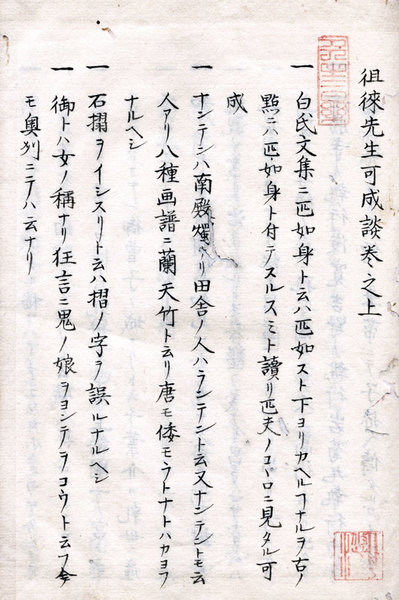 徂徠先生可成談巻之上
一 白氏文集ニ匹如身ト云ハ匹如スト下ヨリカヘルヿナルヲ古ノ
點ニハ匹如身ト付テスルスミト讀リ匹夫ノコヽロニ見タル可
成
一 ナンテンハ南殿ヘリ田舎ノ人ハランテント云又ナンテントモ云
人アリ八種画譜ニ蘭天竹ト云リ唐モ倭モラトナトハカヨフ
ナルヘシ
一 石摺ヲイシスリト云ハ摺ノ字ヲ誤ルナルヘシ
一 御トハ女ノ稱ナリ狂言ニ鬼ノ娘ヲヨンテヲコウト云フ今
モ奥列ニテハ云ナリ